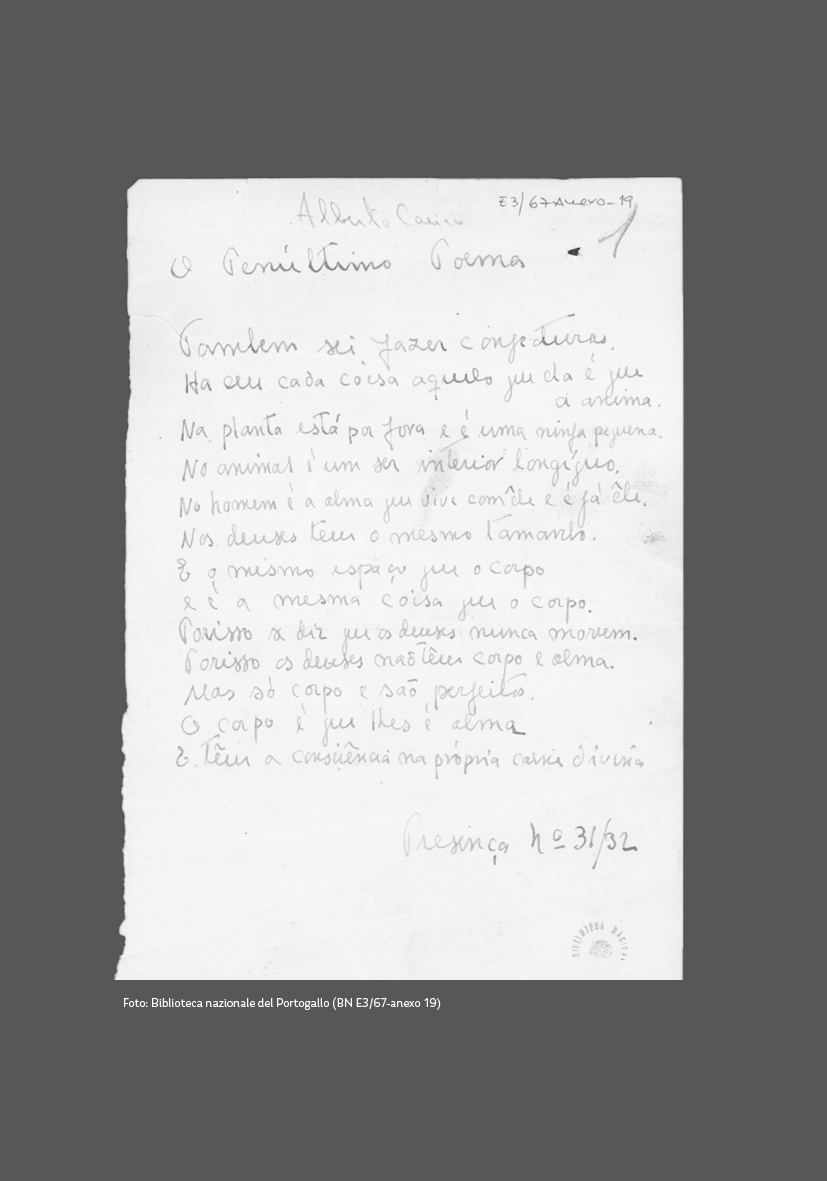 E3/67-Anexo-19
Alberto Caeiro
1
O Penúltimo Poema
Tambem sei fazer conjecturas.
Ha em cada coisa aquilo que ela é que
a anima.
Na planta está por fora e é uma ninfa pequena.
No animal é um ser interior longíquo.
No homem é a alma que vive com êle e é já êle.
Nos deuses tem o mesmo tamanho.
E o mesmo espaço que o corpo
e é a mesma coisa que o corpo.
Porisso se diz que os deuses nunca morrem.
Porisso os deuses não têm corpo e alma.
Mas só corpo e são perfeitos.
O corpo é que lhes é alma
E têm a consciência na própria carne divina
Presença nº 31/32
BIBLIOTECA NACIONAL
Foto: Biblioteca nazionale del Portogallo (BN E3/67-anexo 19)